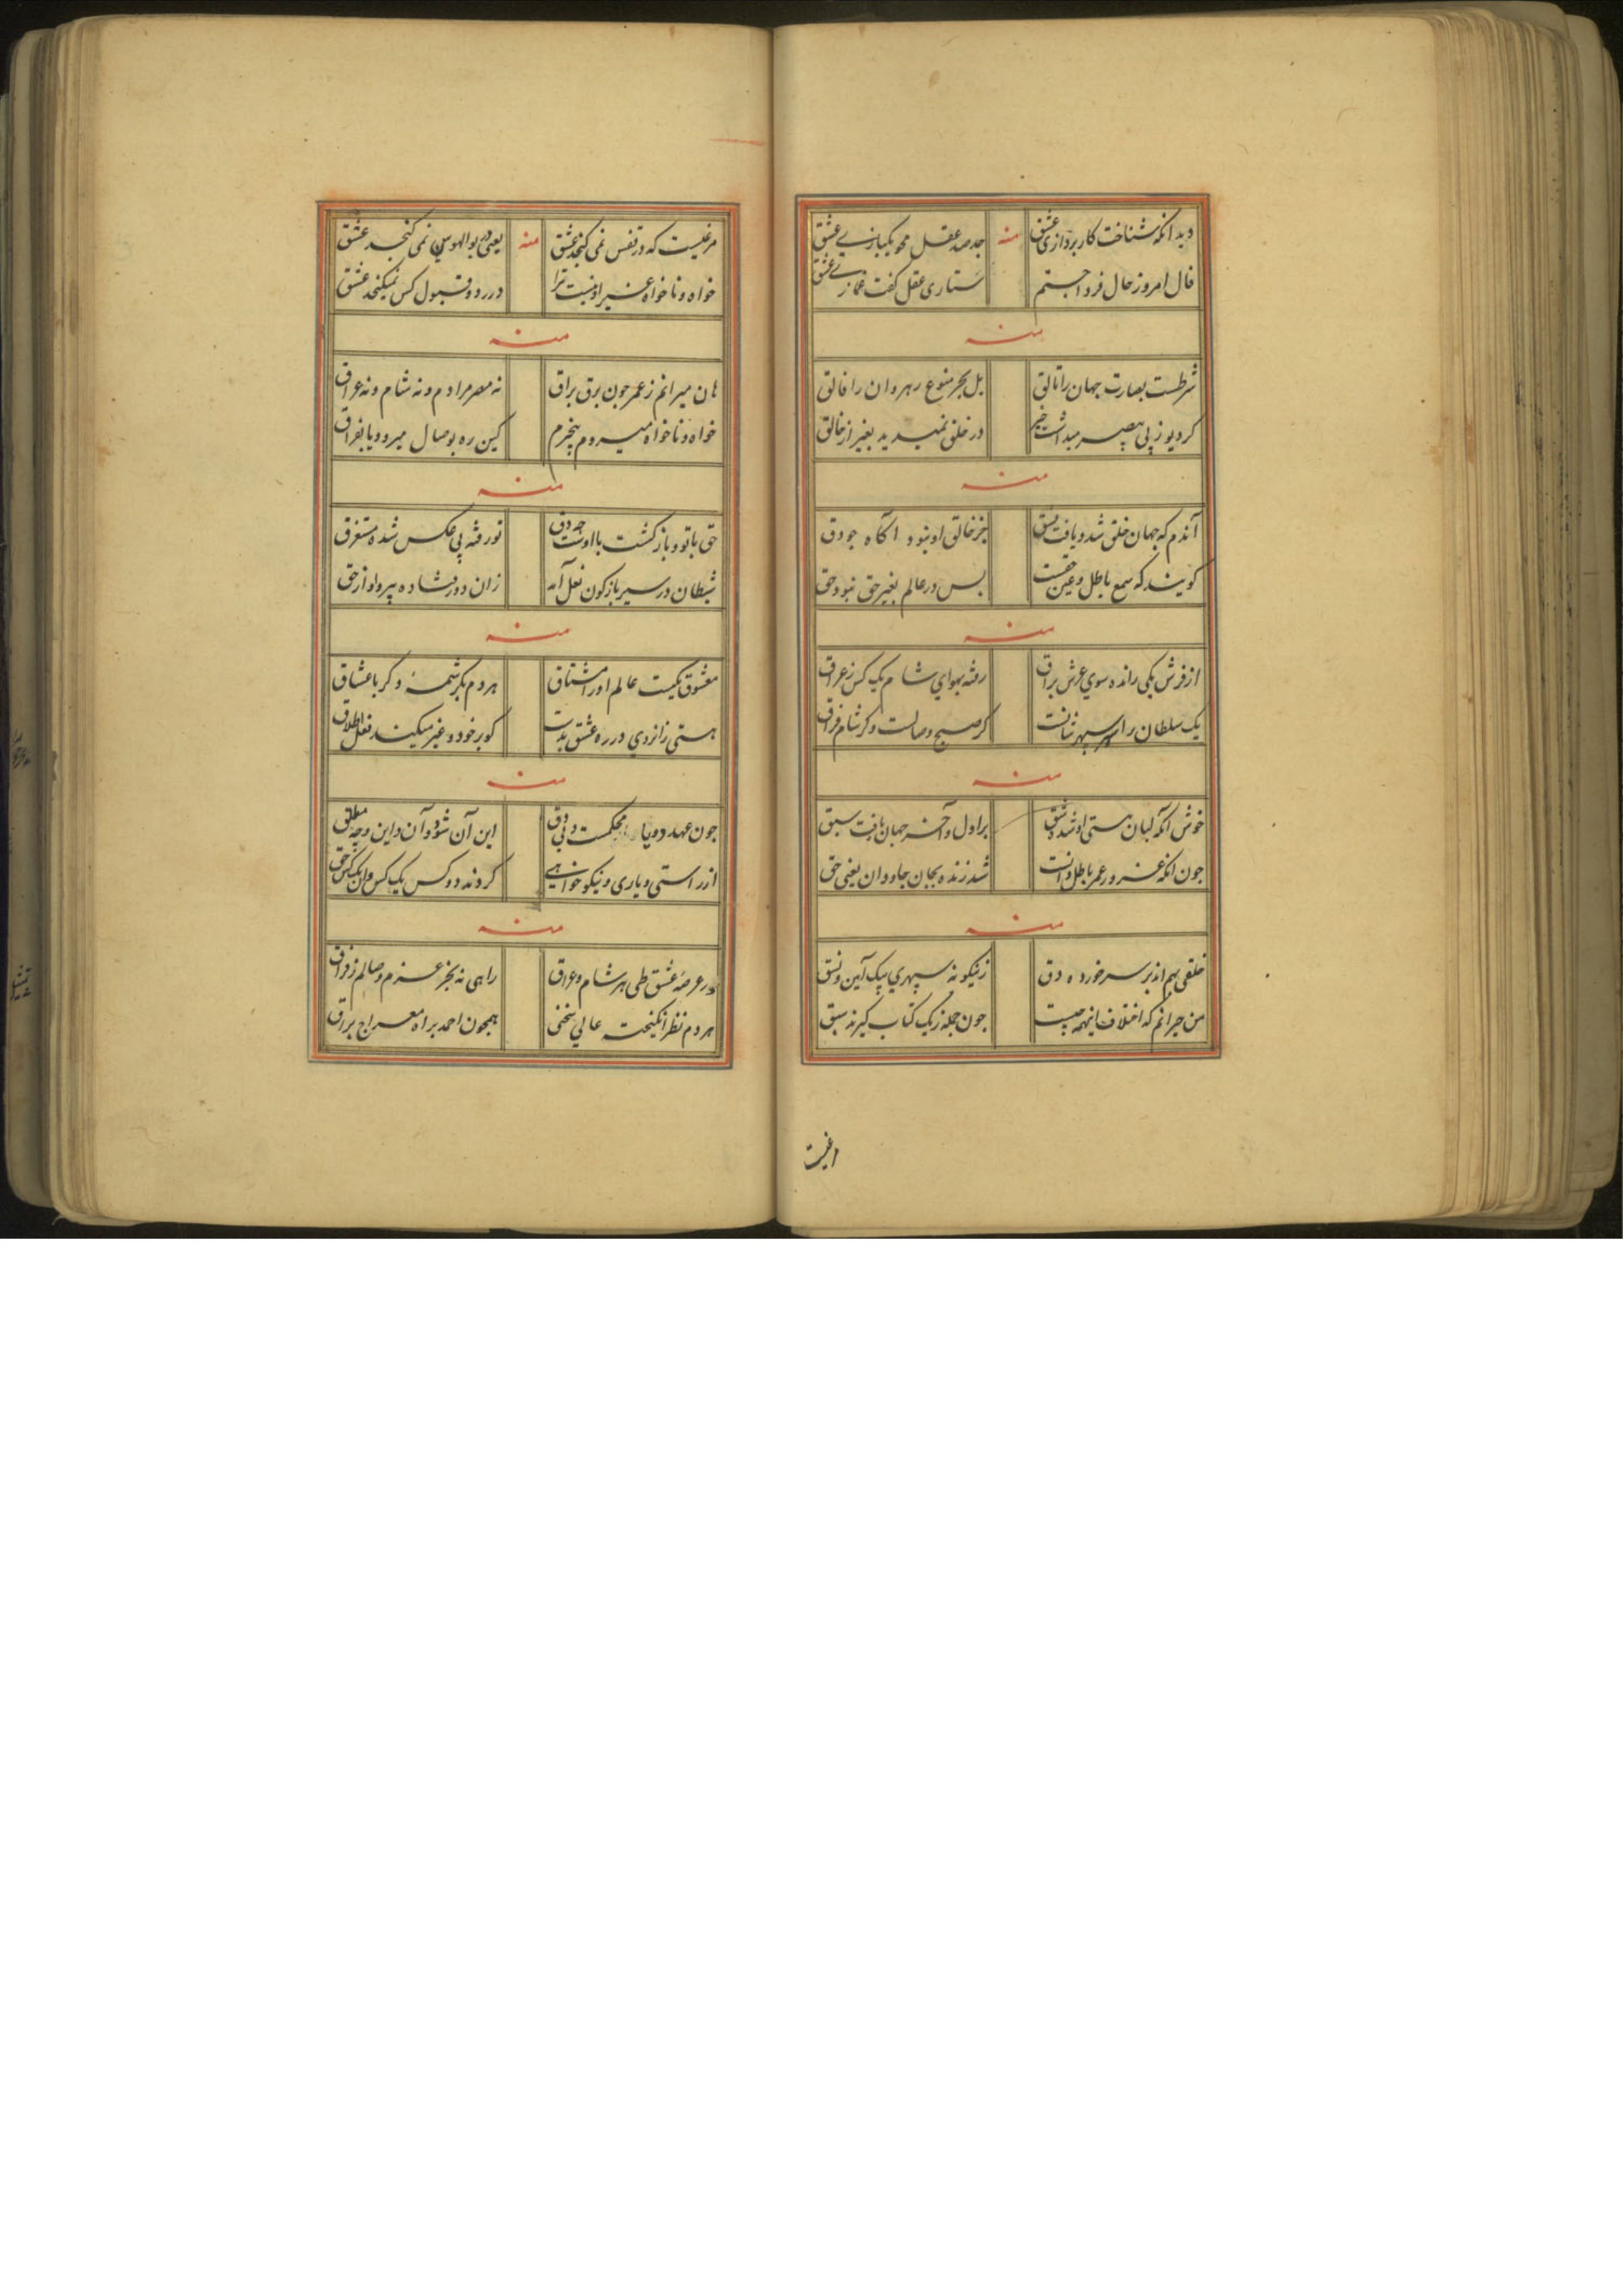 دید آنکه شناخت کاربردازی عشق منه جد صد عقل محو یکبازی عشق
فال امروز حال فردا جستم ستاری عقل کفت غمازی عشق
منه
شرطست بصارت جهان را تالق بل بحر منوع رهروان را فالق
کردیو زپی بصر میداشت خبر در خلق نمیدید بغیر از خالق
منه
آندم که جهان خلق شد و یافت نسق جز خالق او نبود آکاه جودق
کویند که سمع باطل و عین حقست بس در عالم بغیر حق نبود حق
منه
از فرش یکی رانده سوی عرش براق رفته بهوای شام یک کس زعراق
یک سلطان را سپهر کر صبح وصالست و کر شام فراق
منه
خوش آنکه لسان هستی او شد شق بر اول و آخر جهان یافت سبق
جون آنکه غرور عمر باطل دانست شد زنده بجان جاودان یعنی حق
منه
خلقی بهم اند بر سر خورده دق زینکونه سپهری بیک آیین و نسق
من حیرانم که اختلاف اینهمه جیست جون جمله زیک کتاب کیرند سبق
مرغیست که در قفس نمی کنجد عشق منه یعنی در بوالهوس نمی کنجد عشق
خواه و ناخواه غیر او نیست ترا در رد و قبول کس نمیکنجد عشق
منه
هان میرانم زعمر جون برق براق نه مصر مرادم و نه شام و نه عراق
خواه و ناخواه میروم بیخبرم کین ره بوصال میرود یا بفراق
منه
حق با تو و بازکشت با اوست تو رفته پی عکس شده مستغرق
شیطان در سیر بازکون نعل آمد زان دور فتاده پیرو او از حق
منه
معشوق یکیست عالم او را مشتاق هر دم بکرشمه دکر با عشاق
هستی زانروی در ره عشق بدست کو بر خود و غیر میکند فعل اطلاق
منه
جون عهد دو یار محکمست و بی دق این آن شود و آن این وجه مطلق
از راستی و یاری و نیکو خواهی کردند دو کس یک کس و آن یک کس حق
منه
در عرصه عشق طی هر شام و عراق راهی نه بجز عزم وصالم زفراق
هر دم نظر انکیخته عالی همجون احمد براه معراج براق